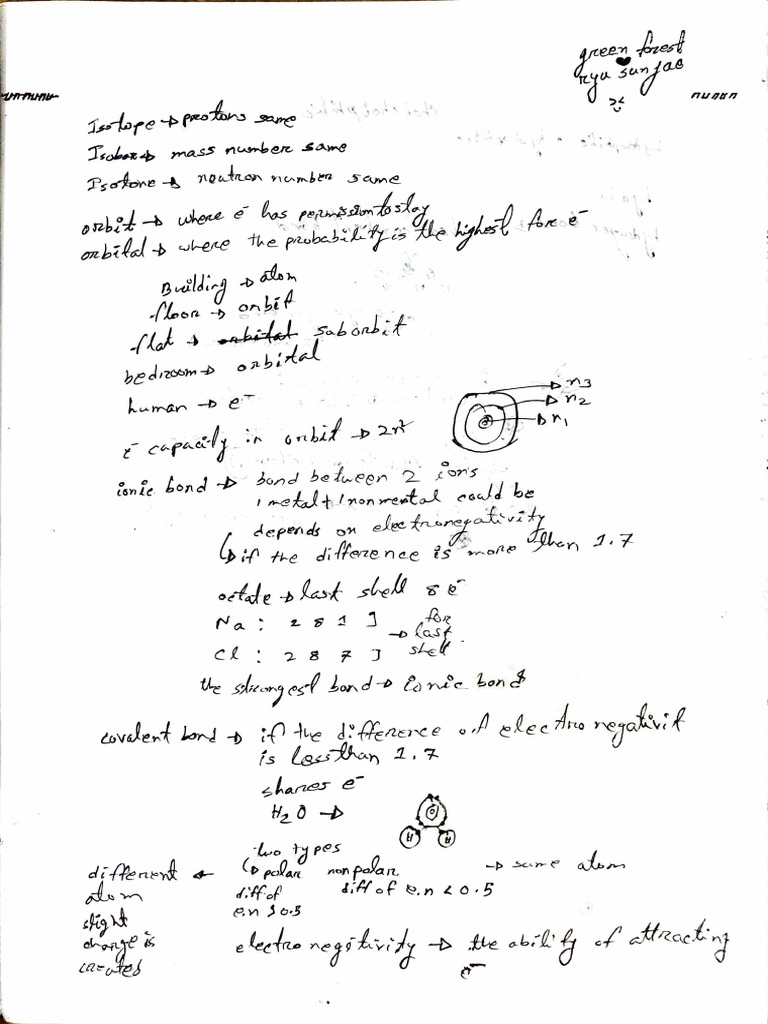 green forest
ryu sunjae
Isotope → protons same
Isobar → mass number same
Isotone → neutron number same
orbit → where e⁻ has permission to stay
orbital → where the probability is the highest for e⁻
Building → atom
floor → orbit
flat → suborbit
bedroom → orbital
human → e⁻
n3
n2
n1
e⁻ capacity in orbit → 2n²
ionic bond → bond between 2 ions
1 metal + 1 nonmental could be
depends on electronegativity
↳ if the difference is more than 1.7
octate → last shell 8 e⁻
Na : 2 8 1 ] for
→ last
Cl : 2 8 7 ] shell
the strongest bond → ionic bond
covalent bond → if the difference of electronegativit
is less than 1.7
shares e⁻
H₂O →
O
H H
two types
different ← ↳ polar nonpolar → same atom
atom diff of diff of e.n < 0.5
slight e.n > 0.5
charge is electronegitivity → the ability of attracting
created e⁻